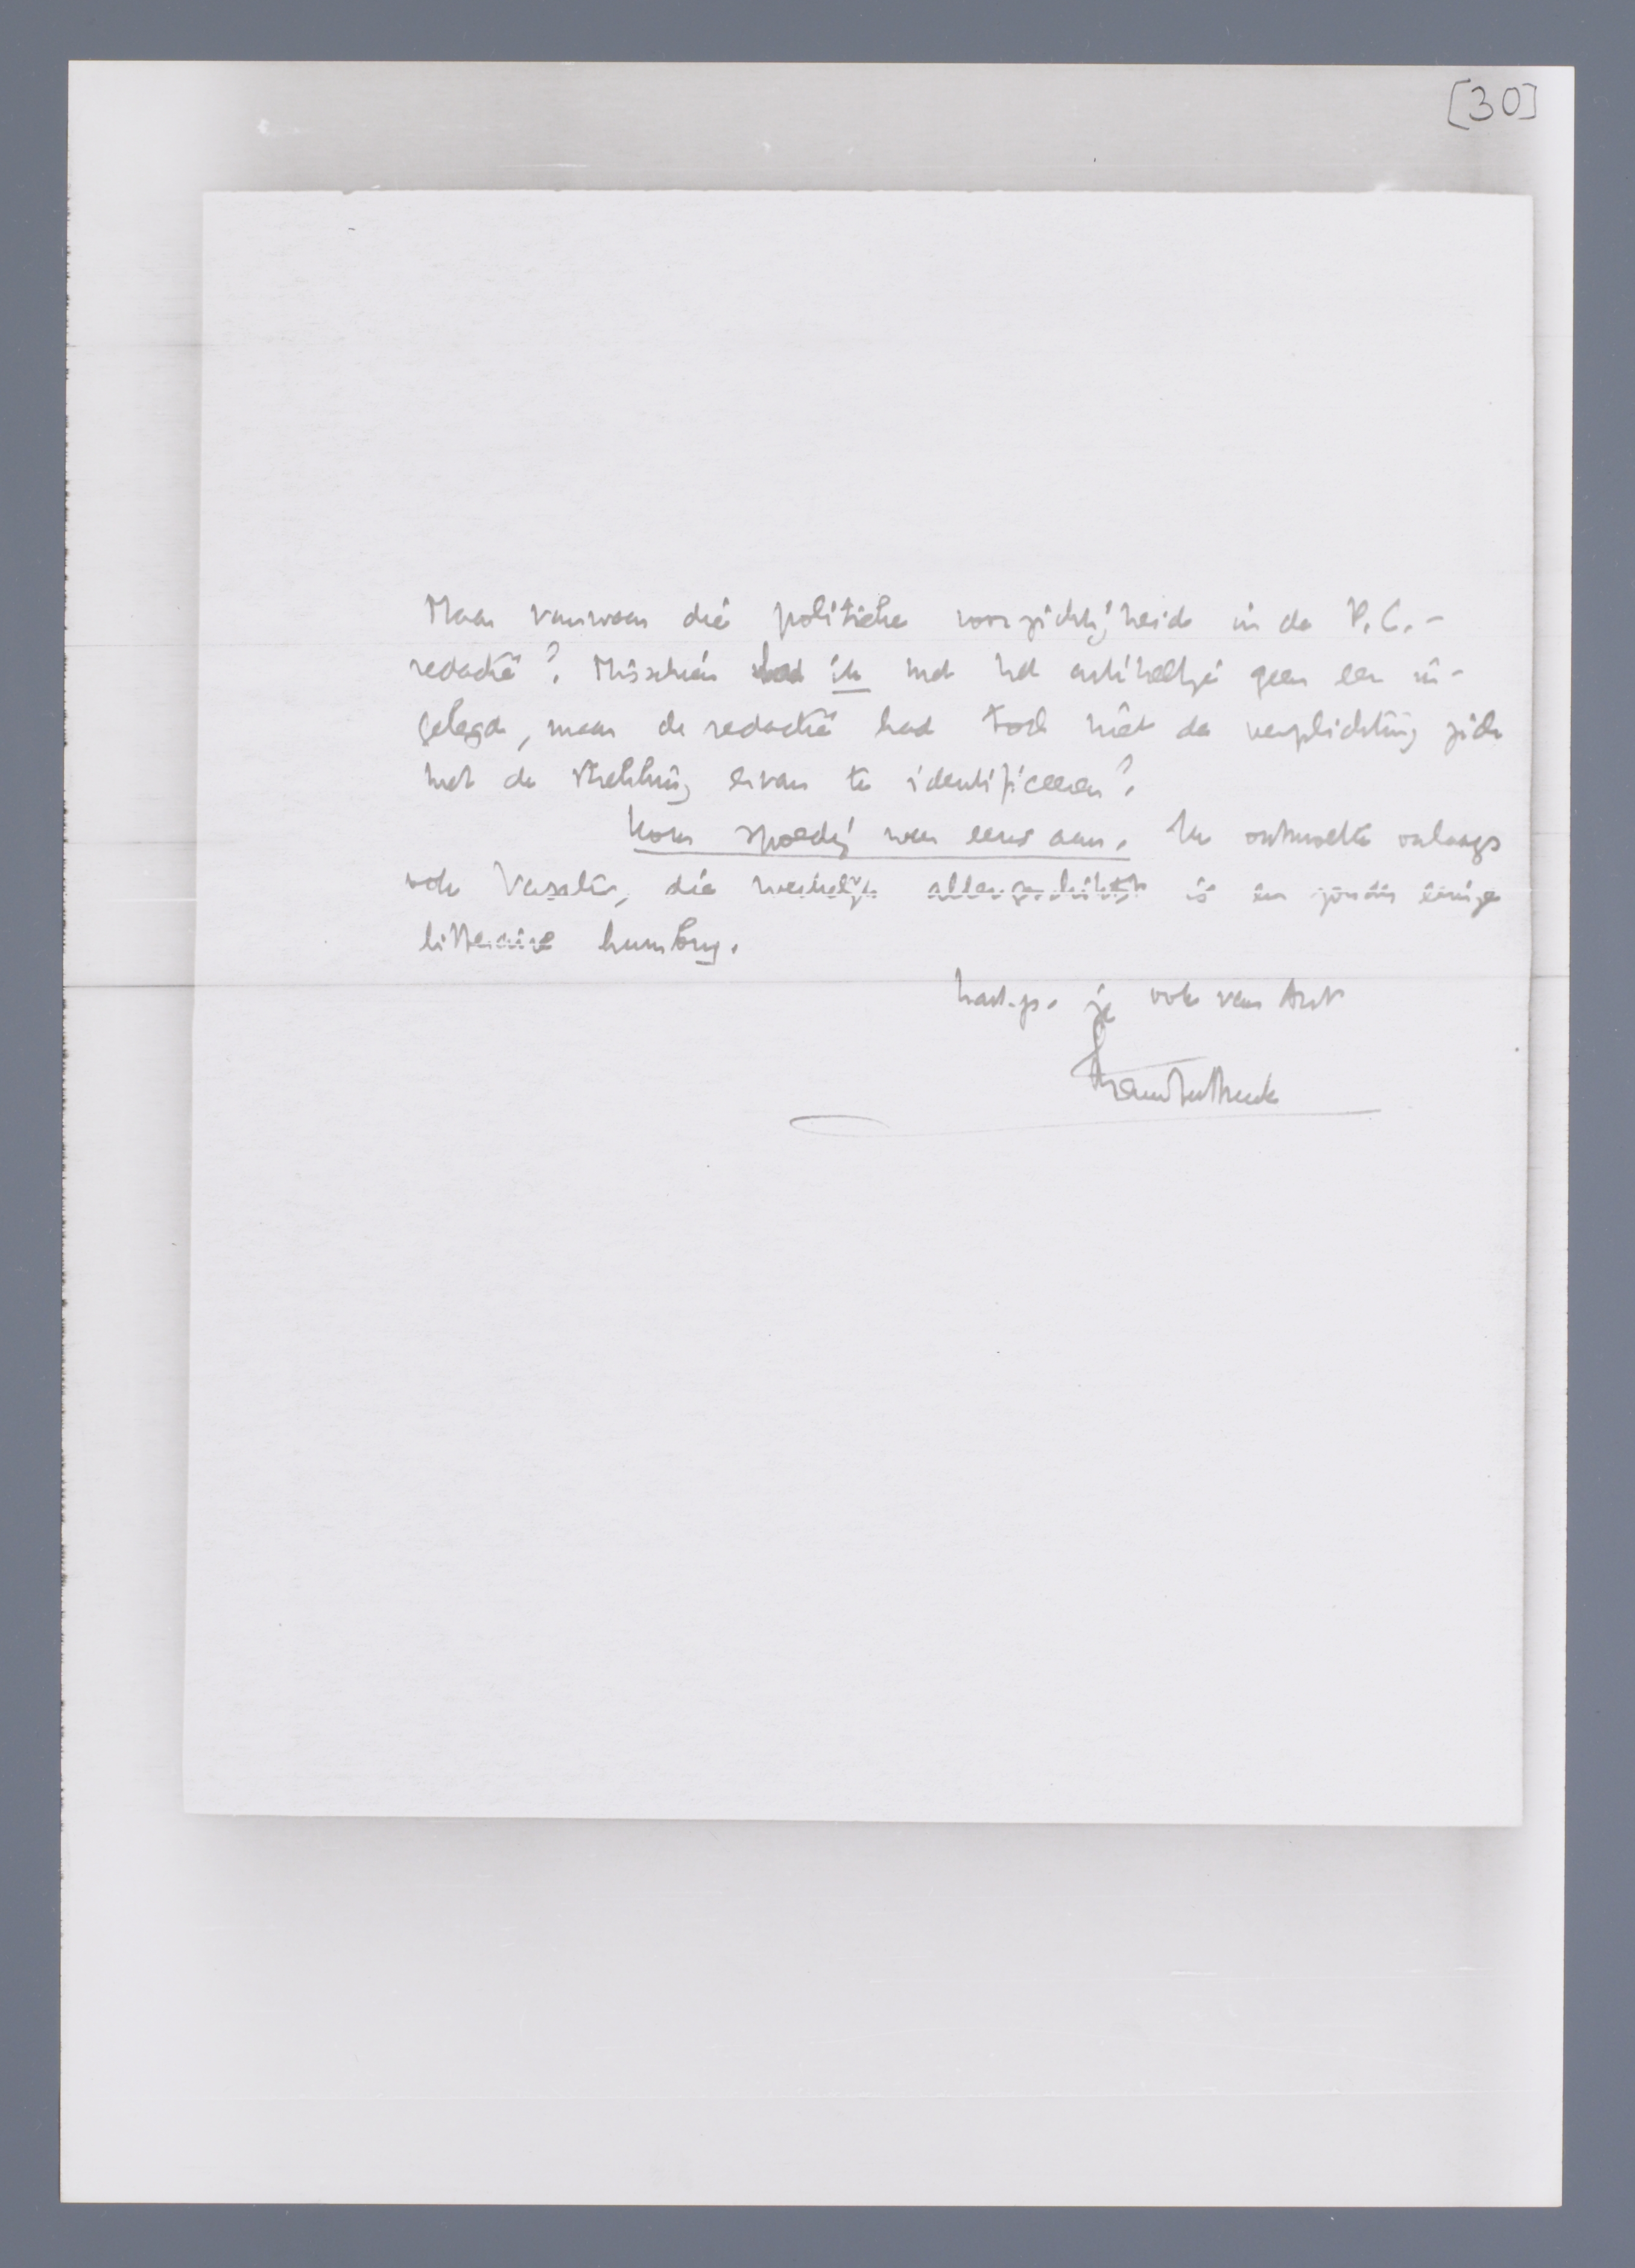 [30]
Maar vanwaar die politieke voorzichtigheid in de P.C.-
redactie? Misschien had ik met het artikeltje geen eer in-
gelegd, maar de redactie had toch niet de verplichting zich
met de strekking ervan te identificeeren?
Kom spoedig weer eens aan. Ik ontmoette onlangs
ook Vasalis, die werkelijk allergelukkigst is en zonder eenige
litteraire humbug.
hart. gr. je ook van Ant
Menno ter Braak